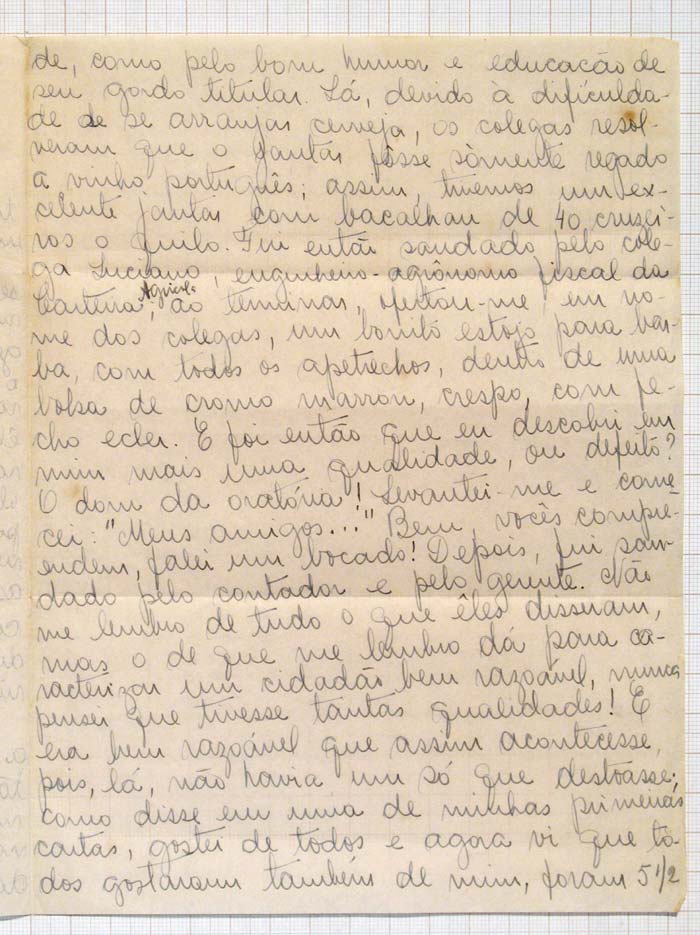 de, como pelo bom humor e educacão de
seu gordo titular. Lá, devido à dificulda-
de de se arranjar cerveja, os colegas resol-
veram que o jantar fôsse sòmente regado
a vinho português; assim, tivemos um ex-
celente jantar com bacalhau de 40 cruzei-
ros o quilo. Fui então saudado pelo cole-
ga Luciano, engenheiro-agrônomo fiscal da
Carteira Agricola; ao terminar, ofertou-me em no-
me dos colegas, um bonito estojo para bar-
ba, com todos os apetrechos, dentro de uma
bolsa de cromo marron, crespo, com fe-
cho ecler. E foi então que eu descobri em
mim mais uma qualidade, ou defeito?
O dom da oratória! Levantei-me e come-
cei: "Meus amigos..." Bem, vocês compre-
endem, falei um bocado! Depois, fui sau-
dado pelo contador e pelo gerente. Não
me lembro de tudo o que êles disseram,
mas o de que me lembro dá para ca-
racterizar um cidadão bem razoável, nunca
pensei que tivesse tantas qualidades! E
era bem razoável que assim acontecesse,
pois, lá, não havia um só que destoasse;
como disse em uma de minhas primeiras
cartas, gostei de todos e agora vi que to-
dos gostaram também de mim, foram 5 1/2